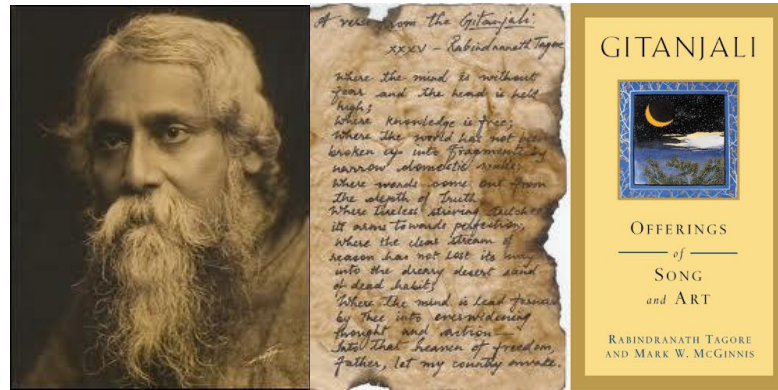 A verse from the Gitanjali:
XXXV – Rabindranath Tagore
Where the mind is without
fear and the head is held
high;
Where knowledge is free;
Where the world has not
broken up into fragments by
narrow domestic
Where words come out from
the depth of truth
Where tireless striving
its arms towards perfection;
Where the clear stream of
reason has not lost its way
into the dreary desert sand
of dead habit;
Where the mind is lead
by Thee into ever-widening
thought and action—
Into that heaven of freedom,
Father, let my country awake.
GITANJALI
OFFERINGS
of
SONG
and ART
RABINDRANATH TAGORE
AND MARK W. MCGINNIS